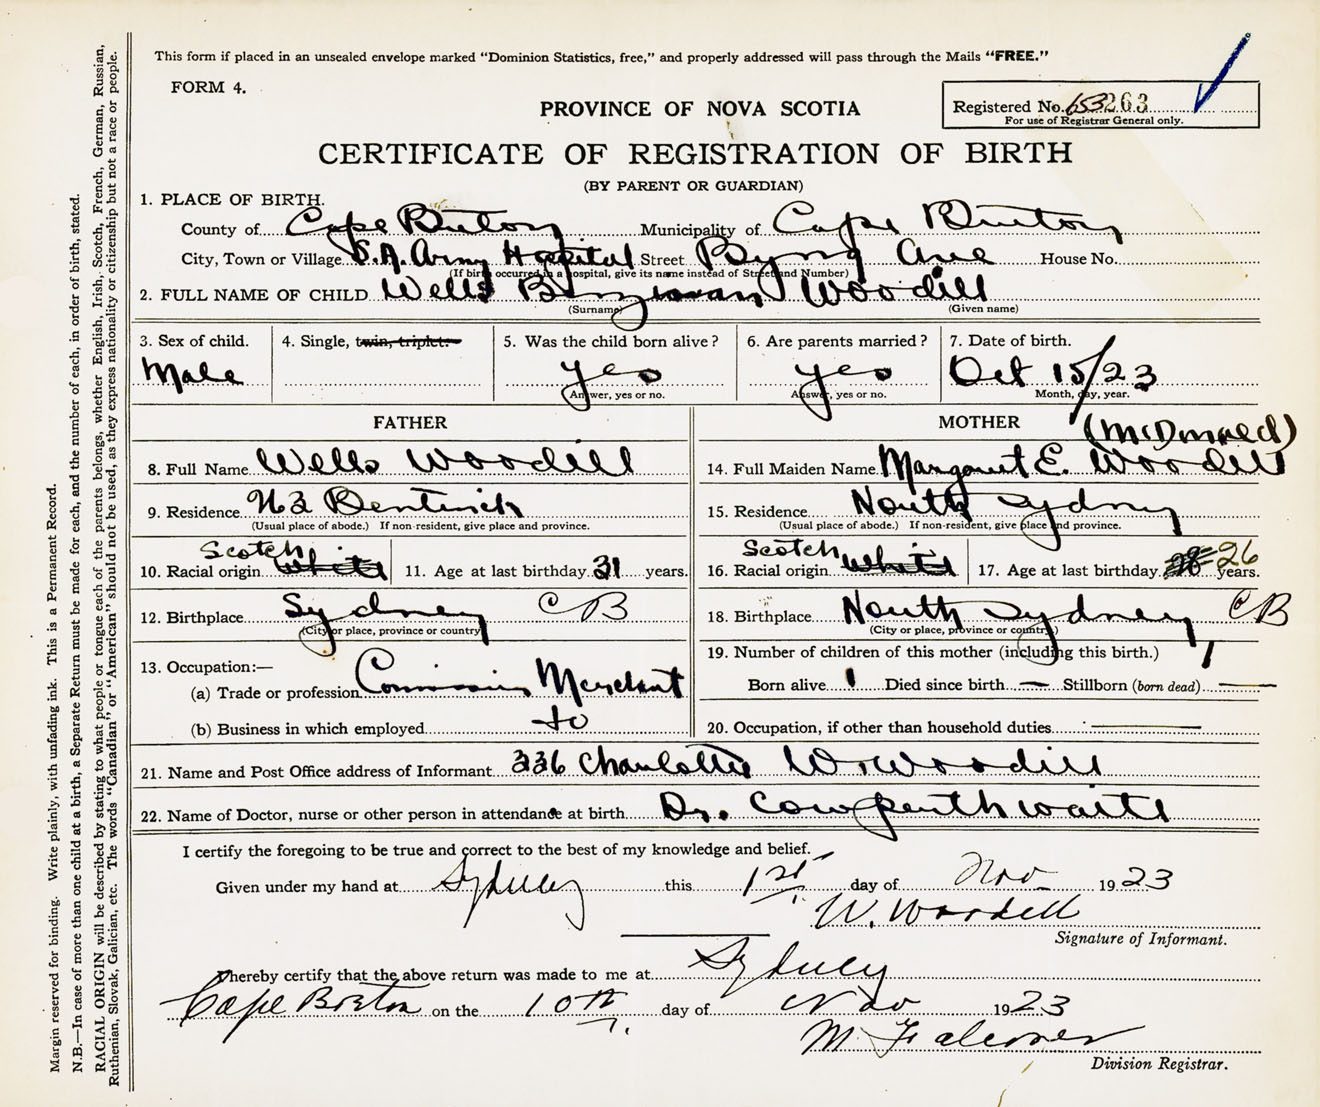 This form if placed in an unsealed envelope marked "Dominion Statistics, free," and properly addressed will pass through the Mails "FREE."
FORM 4.
PROVINCE OF NOVA SCOTIA
Registered No. 653263
For use of Registrar General only.
CERTIFICATE OF REGISTRATION OF BIRTH
(BY PARENT OR GUARDIAN)
1. PLACE OF BIRTH.
County of Cape Breton Municipality of Cape Breton
City, Town or Village S.A. Army Hospital Street Byng Ave House No.
(If birth occurred in a hospital, give its name instead of Street and Number)
2. FULL NAME OF CHILD Wells Woodill
(Surname) (Given name)
3. Sex of child. 4. Single, twin, triplet. 5. Was the child born alive? 6. Are parents married? 7. Date of birth.
Male yes yes Oct 15/23
Answer, yes or no. Answer, yes or no. Month, day, year.
FATHER MOTHER
(McDonald)
8. Full Name Wells Woodill 14. Full Maiden Name Margaret E. Woodill
9. Residence Bentinck 15. Residence North Sydney
(Usual place of abode.) If non-resident, give place and province. (Usual place of abode.) If non-resident, give place and province.
Scotch Scotch
10. Racial origin White 11. Age at last birthday 31 years. 16. Racial origin White 17. Age at last birthday 26 years.
12. Birthplace Sydney CB 18. Birthplace North Sydney CB
(City or place, province or country) (City or place, province or country)
13. Occupation:— 19. Number of children of this mother (including this birth.) 1
(a) Trade or profession Commission Merchant Born alive 1 Died since birth — Stillborn (born dead) —
(b) Business in which employed do 20. Occupation, if other than household duties —
21. Name and Post Office address of Informant 336 Charlotte W. Woodill
22. Name of Doctor, nurse or other person in attendance at birth Dr. Cowperthwaite
I certify the foregoing to be true and correct to the best of my knowledge and belief.
Given under my hand at Sydney this 1st day of Nov 1923
W. Woodill
Signature of Informant.
I hereby certify that the above return was made to me at Sydney
Cape Breton on the 10th day of Nov 1923
M Falconer
Division Registrar.
Margin reserved for binding. Write plainly, with unfading ink. This is a Permanent Record.
N.B.—In case of more than one child at a birth, a Separate Return must be made for each, and the number of each, in order of birth, stated.
RACIAL ORIGIN will be described by stating to what people or tongue each of the parents belongs, whether English, Irish, Scotch, French, German, Russian,
Ruthenian, Slovak, Galician, etc. The words "Canadian" or "American" should not be used, as they express nationality or citizenship but not a race or people.